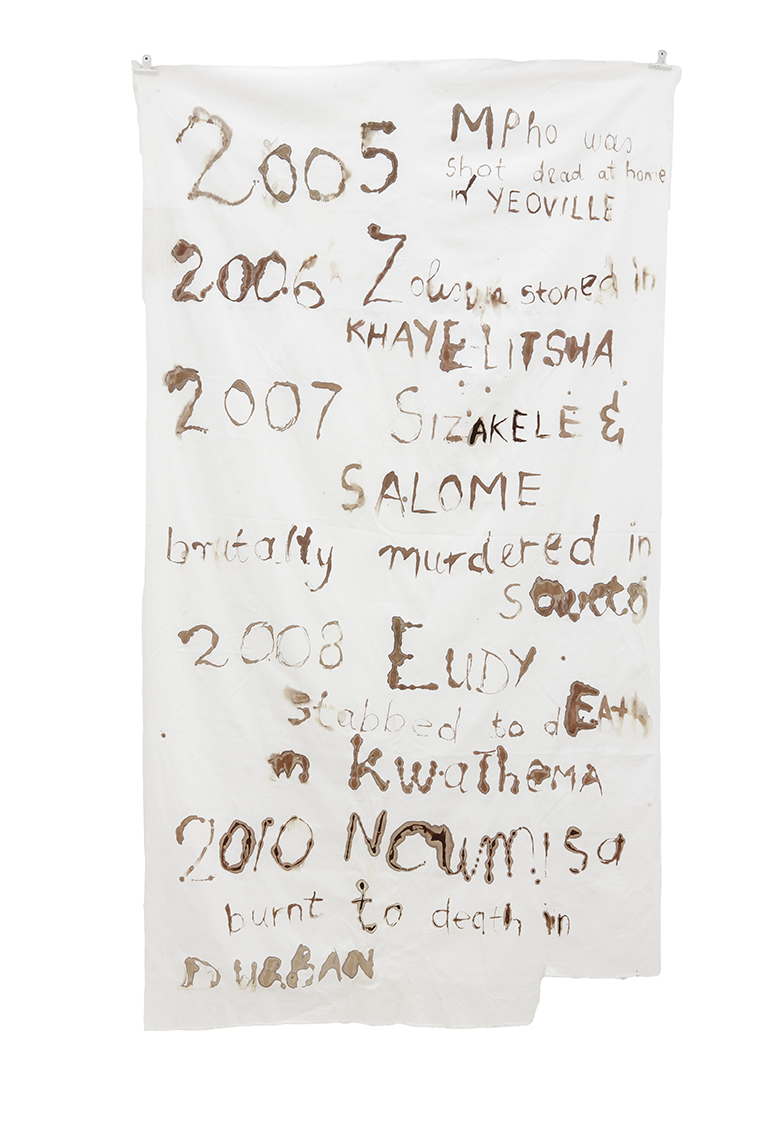 2005 Mpho was
shot dead at home
in YEOVILLE
2006 Zoliswa stoned in
KHAYELITSHA
2007 SIZAKELE &
SALOME
brutally murdered in
Soweto
2008 EUDY
stabbed to dEAth
in KwaTheMA
2010 Ncumisa
burnt to death in
DURBAN